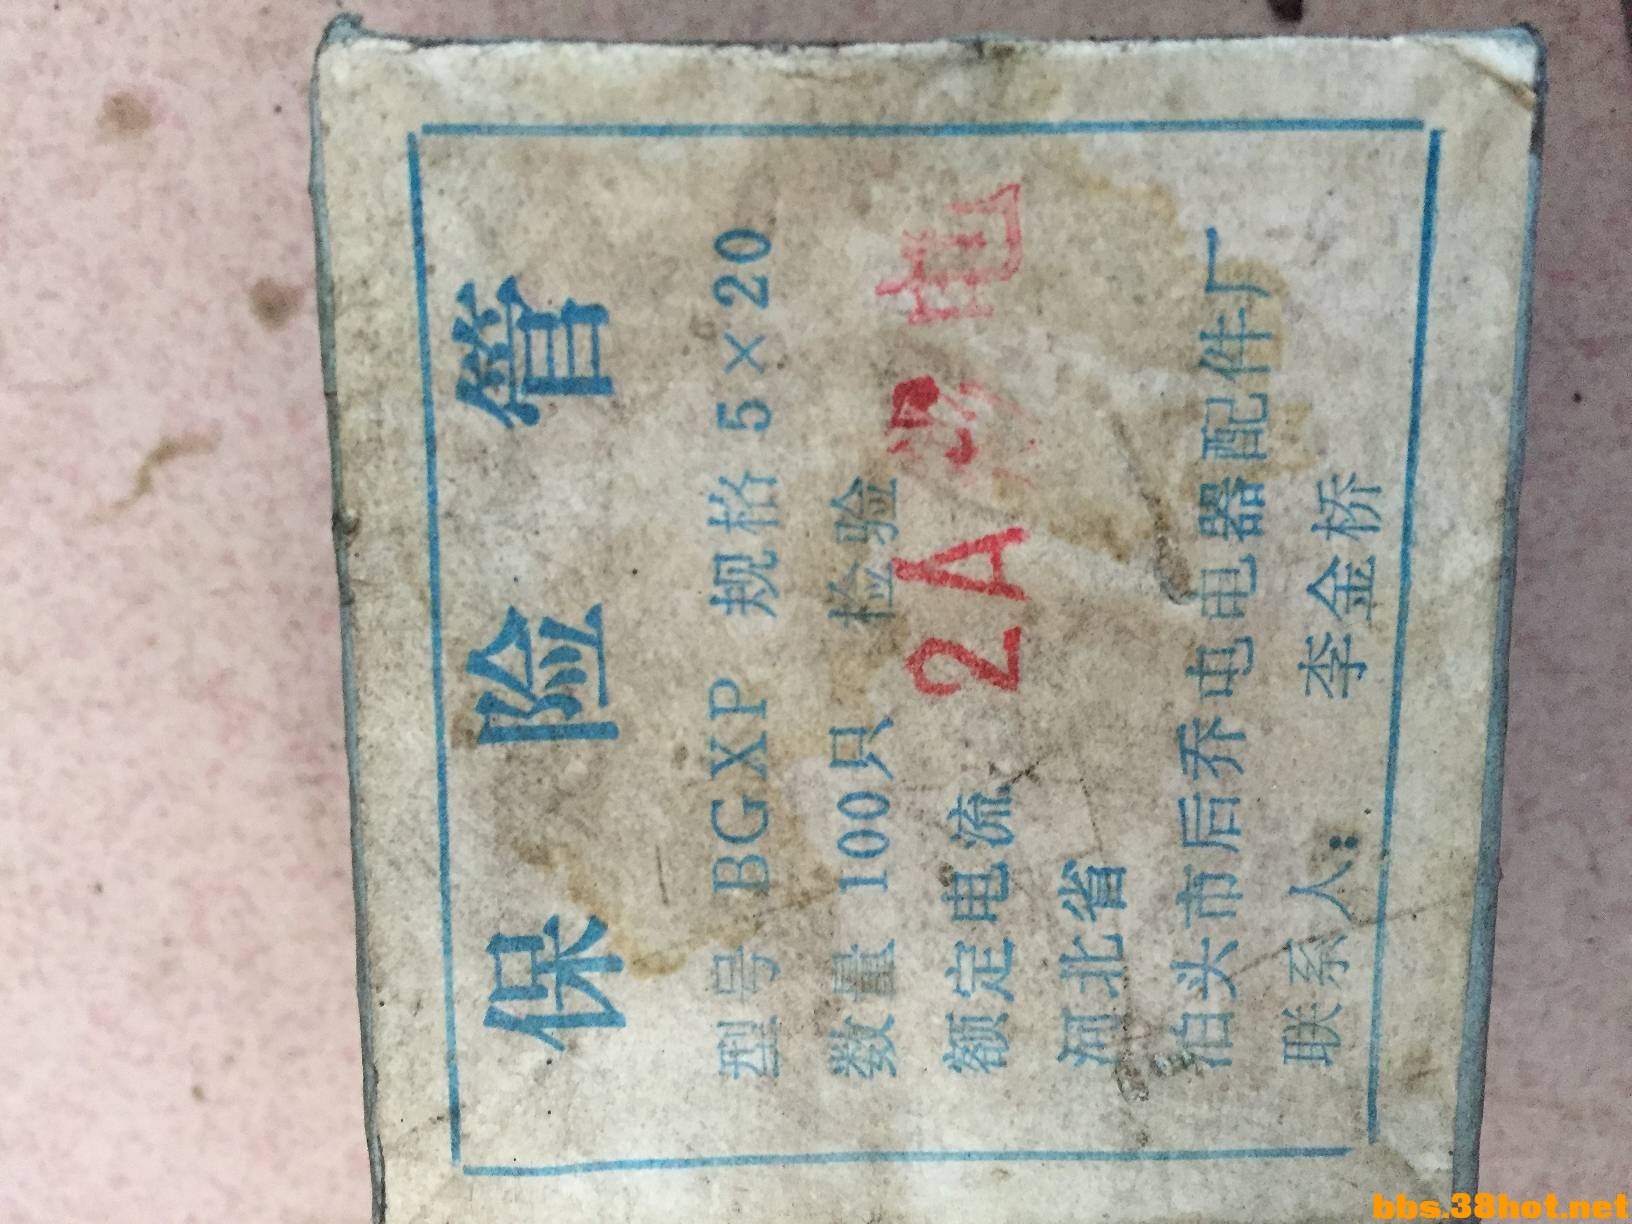 保险管
型号 BGXP 规格 5×20
数量 100只 检验
额定电流 2A
河北省
泊头市后乔电电器配件厂
联系人: 李金桥
bbs.38hot.net